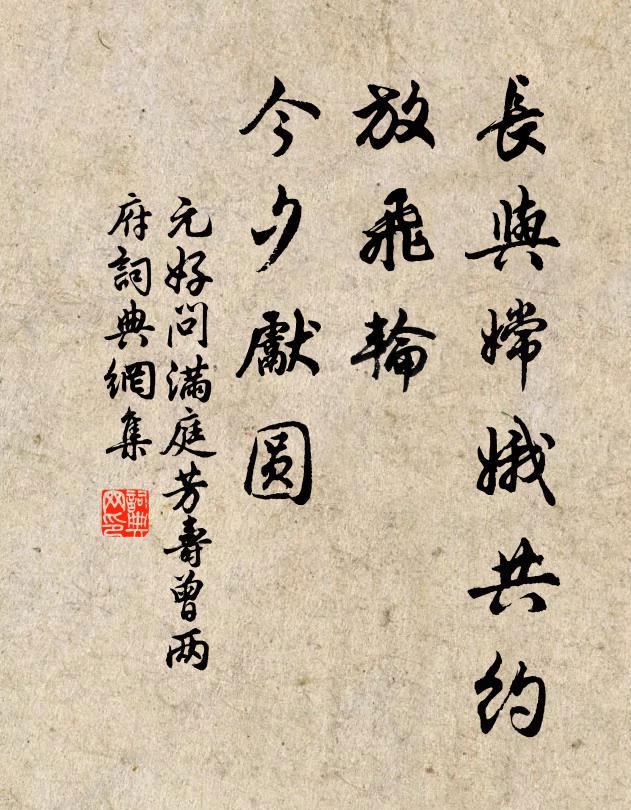 長與嫦娥共約
放飛輪
今夕獻圆
元好问满庭芳壽曾两
府詞典網集
詞典网印